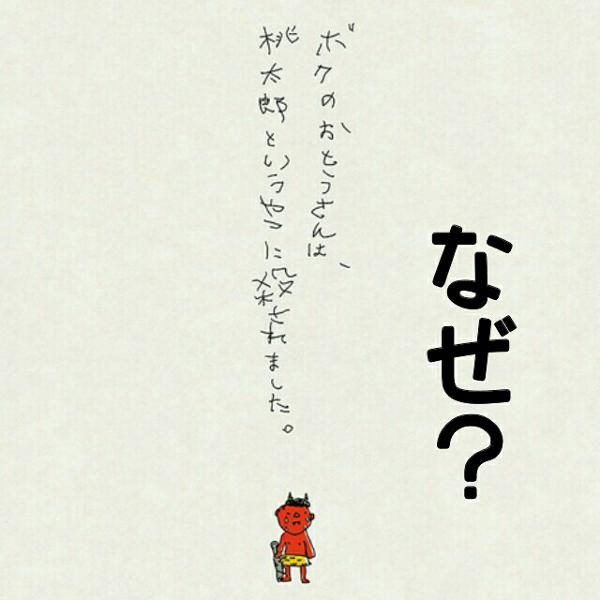 なぜ?
ボクのおとうさんは、
桃太郎というやつに殺されました。